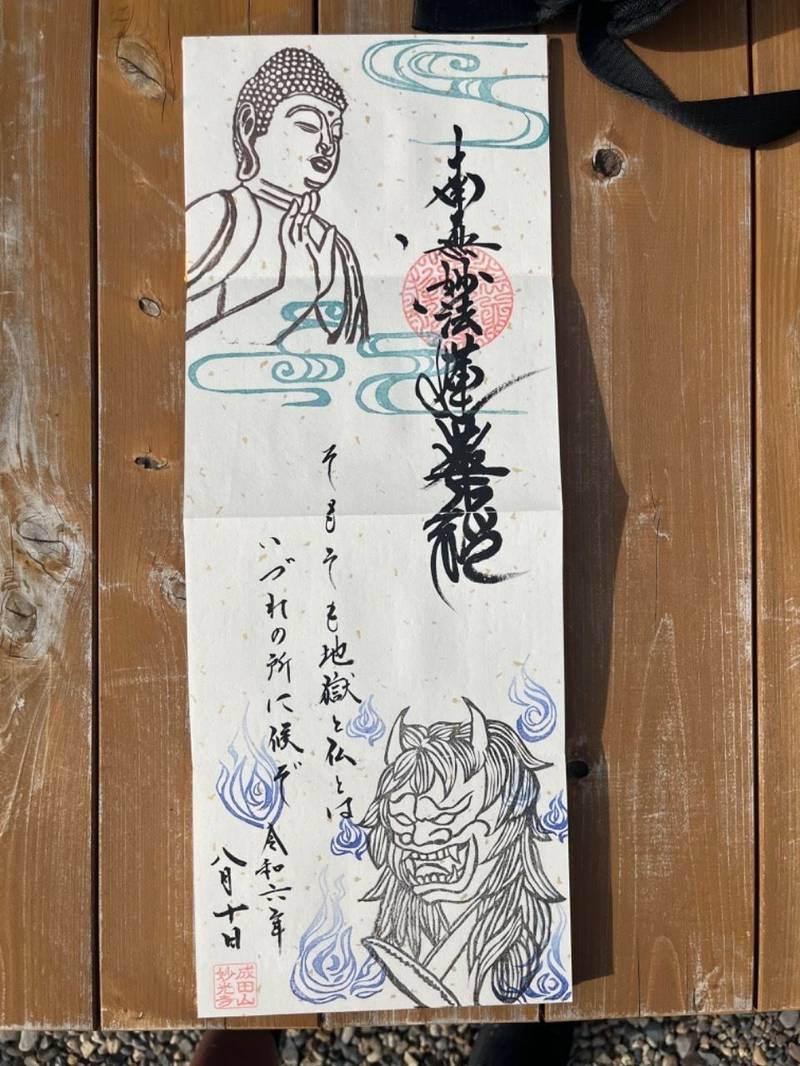 南無妙法蓮華経
そもそも地獄と仏とは
いづれの所に候ぞ
令和六年
八月十日
成田山
妙光寺